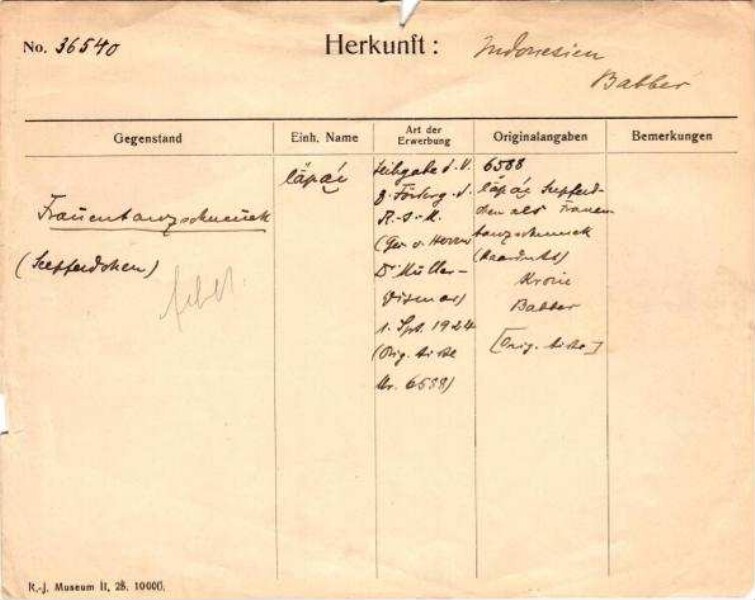 No. 36540
Herkunft: Indonesien
Babber
Gegenstand
Einh. Name
Art der Erwerbung
Originalangaben
Bemerkungen
Frauentanzschmuck
(Seepferdchen)
fehlt
läpai
Leihgabe d. V.
z. Förderg. d.
R.-J.-M.
(Gesch. v. Herrn
Dr Müller-
Wismar)
1. Spt. 1924
(Orig. Liste
Nr. 6588)
6588
läpai Seepferd-
chen als Frauen-
tanzschmuck
Kroin
Babber
[Orig. Liste]
R.-J. Museum II, 28. 10000.